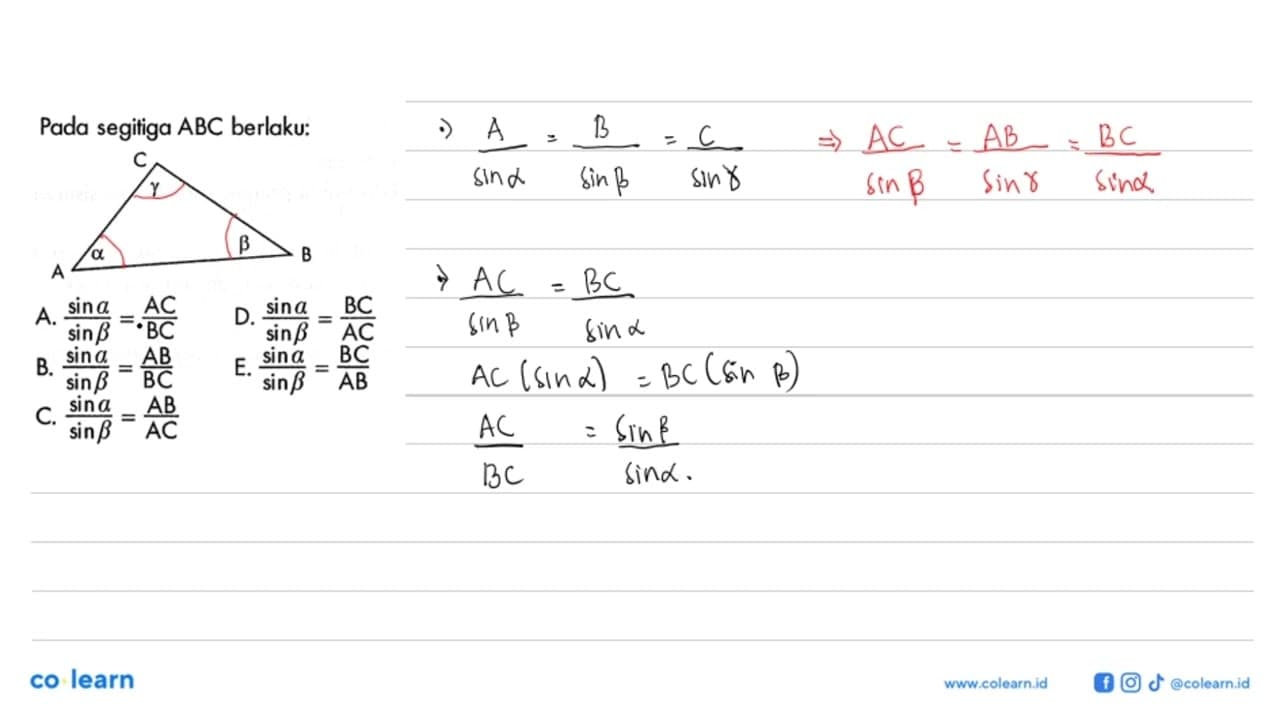 Pada segitiga ABC berlaku:
C
γ
α
β
A
B
A. sin α / sin β = AC / BC
D. sin α / sin β = BC / AC
B. sin α / sin β = AB / BC
E. sin α / sin β = BC / AB
C. sin α / sin β = AB / AC
•) A / sin α = B / sin β = C / sin γ ⇒ AC / sin β = AB / sin γ = BC / sin α
→ AC / sin β = BC / sin α
AC (sin α) = BC (sin β)
AC / BC = sin β / sin α.
co•learn
www.colearn.id
@colearn.id